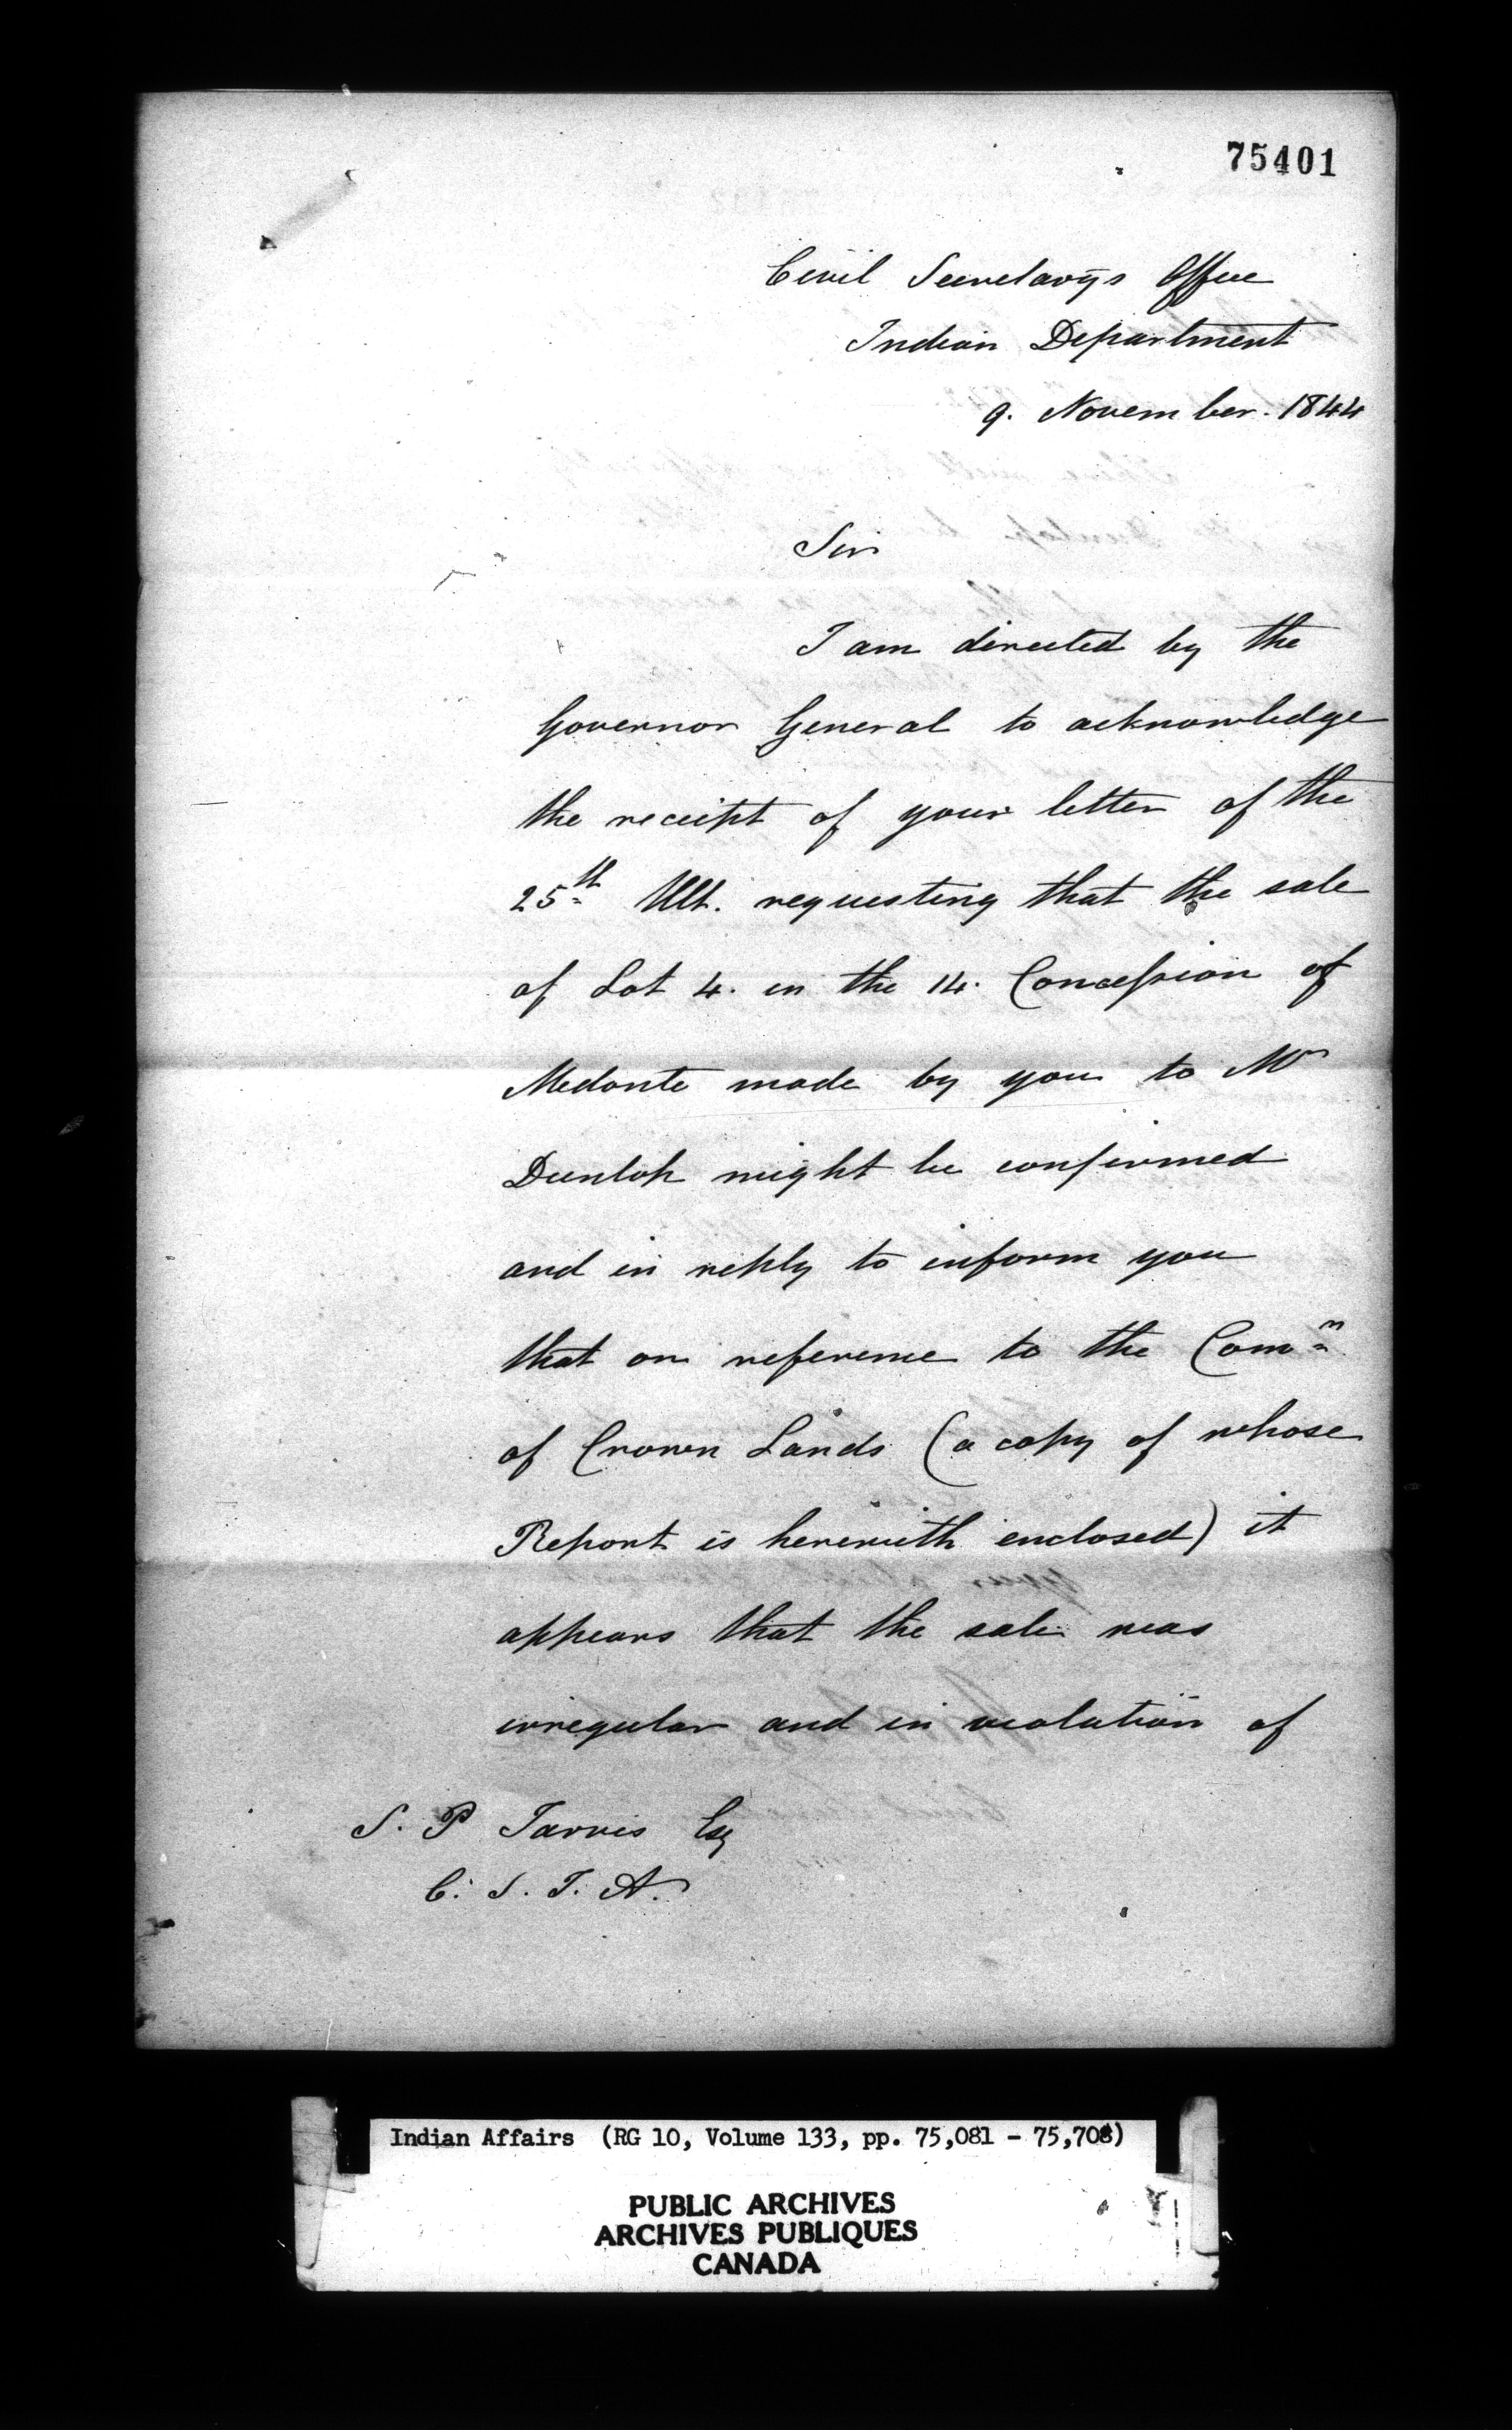 75401
Civil Secretary's Office
Indian Department
9. November. 1844
Sir
I am directed by the
Governor General to acknowledge
the receipt of your letter of the
25th Ult. requesting that the sale
of Lot 4. in the 14. Concession of
Medonte made by you to Mr
Dunlop might be confirmed
and in reply to inform you
that on reference to the Comn
of Crown Lands (a copy of whose
Report is herewith enclosed) it
appears that the sale was
irregular and in violation of
S. P Jarvis Esq
C. S. I. A.
Indian Affairs (RG 10, Volume 133, pp. 75,081 - 75,708)
PUBLIC ARCHIVES
ARCHIVES PUBLIQUES
CANADA